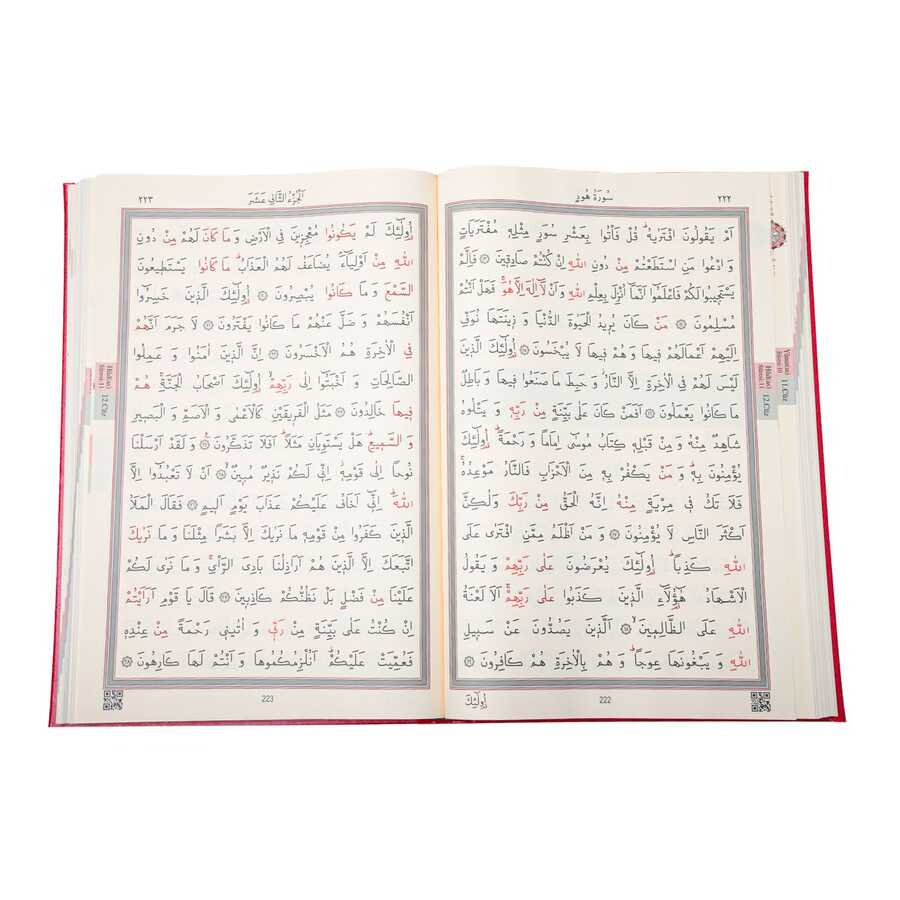 ٢٢٢
سُورَةُ هُودٍ
اَمْ يَقُولُونَ افْتَرٰيهُۜ قُلْ فَأْتُوا بِعَشْرِ سُوَرٍ مِثْلِه۪ مُفْتَرَيَاتٍ
وَادْعُوا مَنِ اسْتَطَعْتُمْ مِنْ دُونِ اللّٰهِ اِنْ كُنْتُمْ صَادِق۪ينَ ﴿١٣﴾ فَاِلَّمْ
يَسْتَج۪يبُوا لَكُمْ فَاعْلَمُٓوا اَنَّمَٓا اُنْزِلَ بِعِلْمِ اللّٰهِ وَاَنْ لَٓا اِلٰهَ اِلَّا هُوَۚ فَهَلْ اَنْتُمْ
مُسْلِمُونَ ﴿١٤﴾ مَنْ كَانَ يُر۪يدُ الْحَيٰوةَ الدُّنْيَا وَز۪ينَتَهَا نُوَفِّ
اِلَيْهِمْ اَعْمَالَهُمْ ف۪يهَا وَهُمْ ف۪يهَا لَا يُبْخَسُونَ ﴿١٥﴾ اُو۬لٰٓئِكَ الَّذ۪ينَ
لَيْسَ لَهُمْ فِي الْاٰخِرَةِ اِلَّا النَّارُۘ وَحَبِطَ مَا صَنَعُوا ف۪يهَا وَبَاطِلٌ
مَا كَانُوا يَعْمَلُونَ ﴿١٦﴾ اَفَمَنْ كَانَ عَلٰى بَيِّنَةٍ مِنْ رَبِّه۪ وَيَتْلُوهُ
شَاهِدٌ مِنْهُ وَمِنْ قَبْلِه۪ كِتَابُ مُوسٰٓى اِمَامًا وَرَحْمَةًۜ اُو۬لٰٓئِكَ
يُؤْمِنُونَ بِه۪ۜ وَمَنْ يَكْفُرْ بِه۪ مِنَ الْاَحْزَابِ فَالنَّارُ مَوْعِدُهُۚ
فَلَا تَكُ ف۪ي مِرْيَةٍ مِنْهُ اِنَّهُ الْحَقُّ مِنْ رَبِّكَ وَلٰكِنَّ
اَكْثَرَ النَّاسِ لَا يُؤْمِنُونَ ﴿١٧﴾ وَمَنْ اَظْلَمُ مِمَّنِ افْتَرٰى عَلَى
اللّٰهِ كَذِبًاۜ اُو۬لٰٓئِكَ يُعْرَضُونَ عَلٰى رَبِّهِمْ وَيَقُولُ
الْاَشْهَادُ هٰٓؤُ۬لَٓاءِ الَّذ۪ينَ كَذَبُوا عَلٰى رَبِّهِمْۚ اَلَا لَعْنَةُ
اللّٰهِ عَلَى الظَّالِم۪ينَ ﴿١٨﴾ اَلَّذ۪ينَ يَصُدُّونَ عَنْ سَب۪يلِ
اللّٰهِ وَيَبْغُونَهَا عِوَجًاۜ وَهُمْ بِالْاٰخِرَةِ هُمْ كَافِرُونَ ﴿١٩﴾
222
اُو۬لٰٓئِكَ
11.Cüz
Hûd(as) Sûresi:11
12.Cüz
اَلْجُزْءُ الثَّانِي عَشَرَ
٢٢٣
اُو۬لٰٓئِكَ لَمْ يَكُونُوا مُعْجِز۪ينَ فِي الْاَرْضِ وَمَا كَانَ لَهُمْ مِنْ دُونِ
اللّٰهِ مِنْ اَوْلِيَٓاءَۢ يُضَاعَفُ لَهُمُ الْعَذَابُۜ مَا كَانُوا يَسْتَط۪يعُونَ
السَّمْعَ وَمَا كَانُوا يُبْصِرُونَ ﴿٢٠﴾ اُو۬لٰٓئِكَ الَّذ۪ينَ خَسِرُٓوا
اَنْفُسَهُمْ وَضَلَّ عَنْهُمْ مَا كَانُوا يَفْتَرُونَ ﴿٢١﴾ لَا جَرَمَ اَنَّهُمْ
فِي الْاٰخِرَةِ هُمُ الْاَخْسَرُونَ ﴿٢٢﴾ اِنَّ الَّذ۪ينَ اٰمَنُوا وَعَمِلُوا
الصَّالِحَاتِ وَاَخْبَتُٓوا اِلٰى رَبِّهِمْۙ اُو۬لٰٓئِكَ اَصْحَابُ الْجَنَّةِۚ هُمْ
ف۪يهَا خَالِدُونَ ﴿٢٣﴾ مَثَلُ الْفَر۪يقَيْنِ كَالْاَعْمٰى وَالْاَصَمِّ وَالْبَص۪يرِ
وَالسَّم۪يعِۜ هَلْ يَسْتَوِيَانِ مَثَلًاۜ اَفَلَا تَذَكَّرُونَ ﴿٢٤﴾ وَلَقَدْ اَرْسَلْنَا
نُوحًا اِلٰى قَوْمِه۪ۘ اِنّ۪ي لَكُمْ نَذ۪يرٌ مُب۪ينٌۙ ﴿٢٥﴾ اَنْ لَا تَعْبُدُٓوا اِلَّا
اللّٰهَۜ اِنّ۪ٓي اَخَافُ عَلَيْكُمْ عَذَابَ يَوْمٍ اَل۪يمٍ ﴿٢٦﴾ فَقَالَ الْمَلَاُ
الَّذ۪ينَ كَفَرُوا مِنْ قَوْمِه۪ مَا نَرٰيكَ اِلَّا بَشَرًا مِثْلَنَا وَمَا نَرٰيكَ
اتَّبَعَكَ اِلَّا الَّذ۪ينَ هُمْ اَرَاذِلُنَا بَادِيَ الرَّأْيِۚ وَمَا نَرٰى لَكُمْ
عَلَيْنَا مِنْ فَضْلٍ بَلْ نَظُنُّكُمْ كَاذِب۪ينَ ﴿٢٧﴾ قَالَ يَا قَوْمِ اَرَاَيْتُمْ
اِنْ كُنْتُ عَلٰى بَيِّنَةٍ مِنْ رَبّ۪ي وَاٰتٰين۪ي رَحْمَةً مِنْ عِنْدِه۪
فَعُمِّيَتْ عَلَيْكُمْۜ اَنُلْزِمُكُمُوهَا وَاَنْتُمْ لَهَا كَارِهُونَ ﴿٢٨﴾
223
Hûd(as) Sûresi:11
12.Cüz